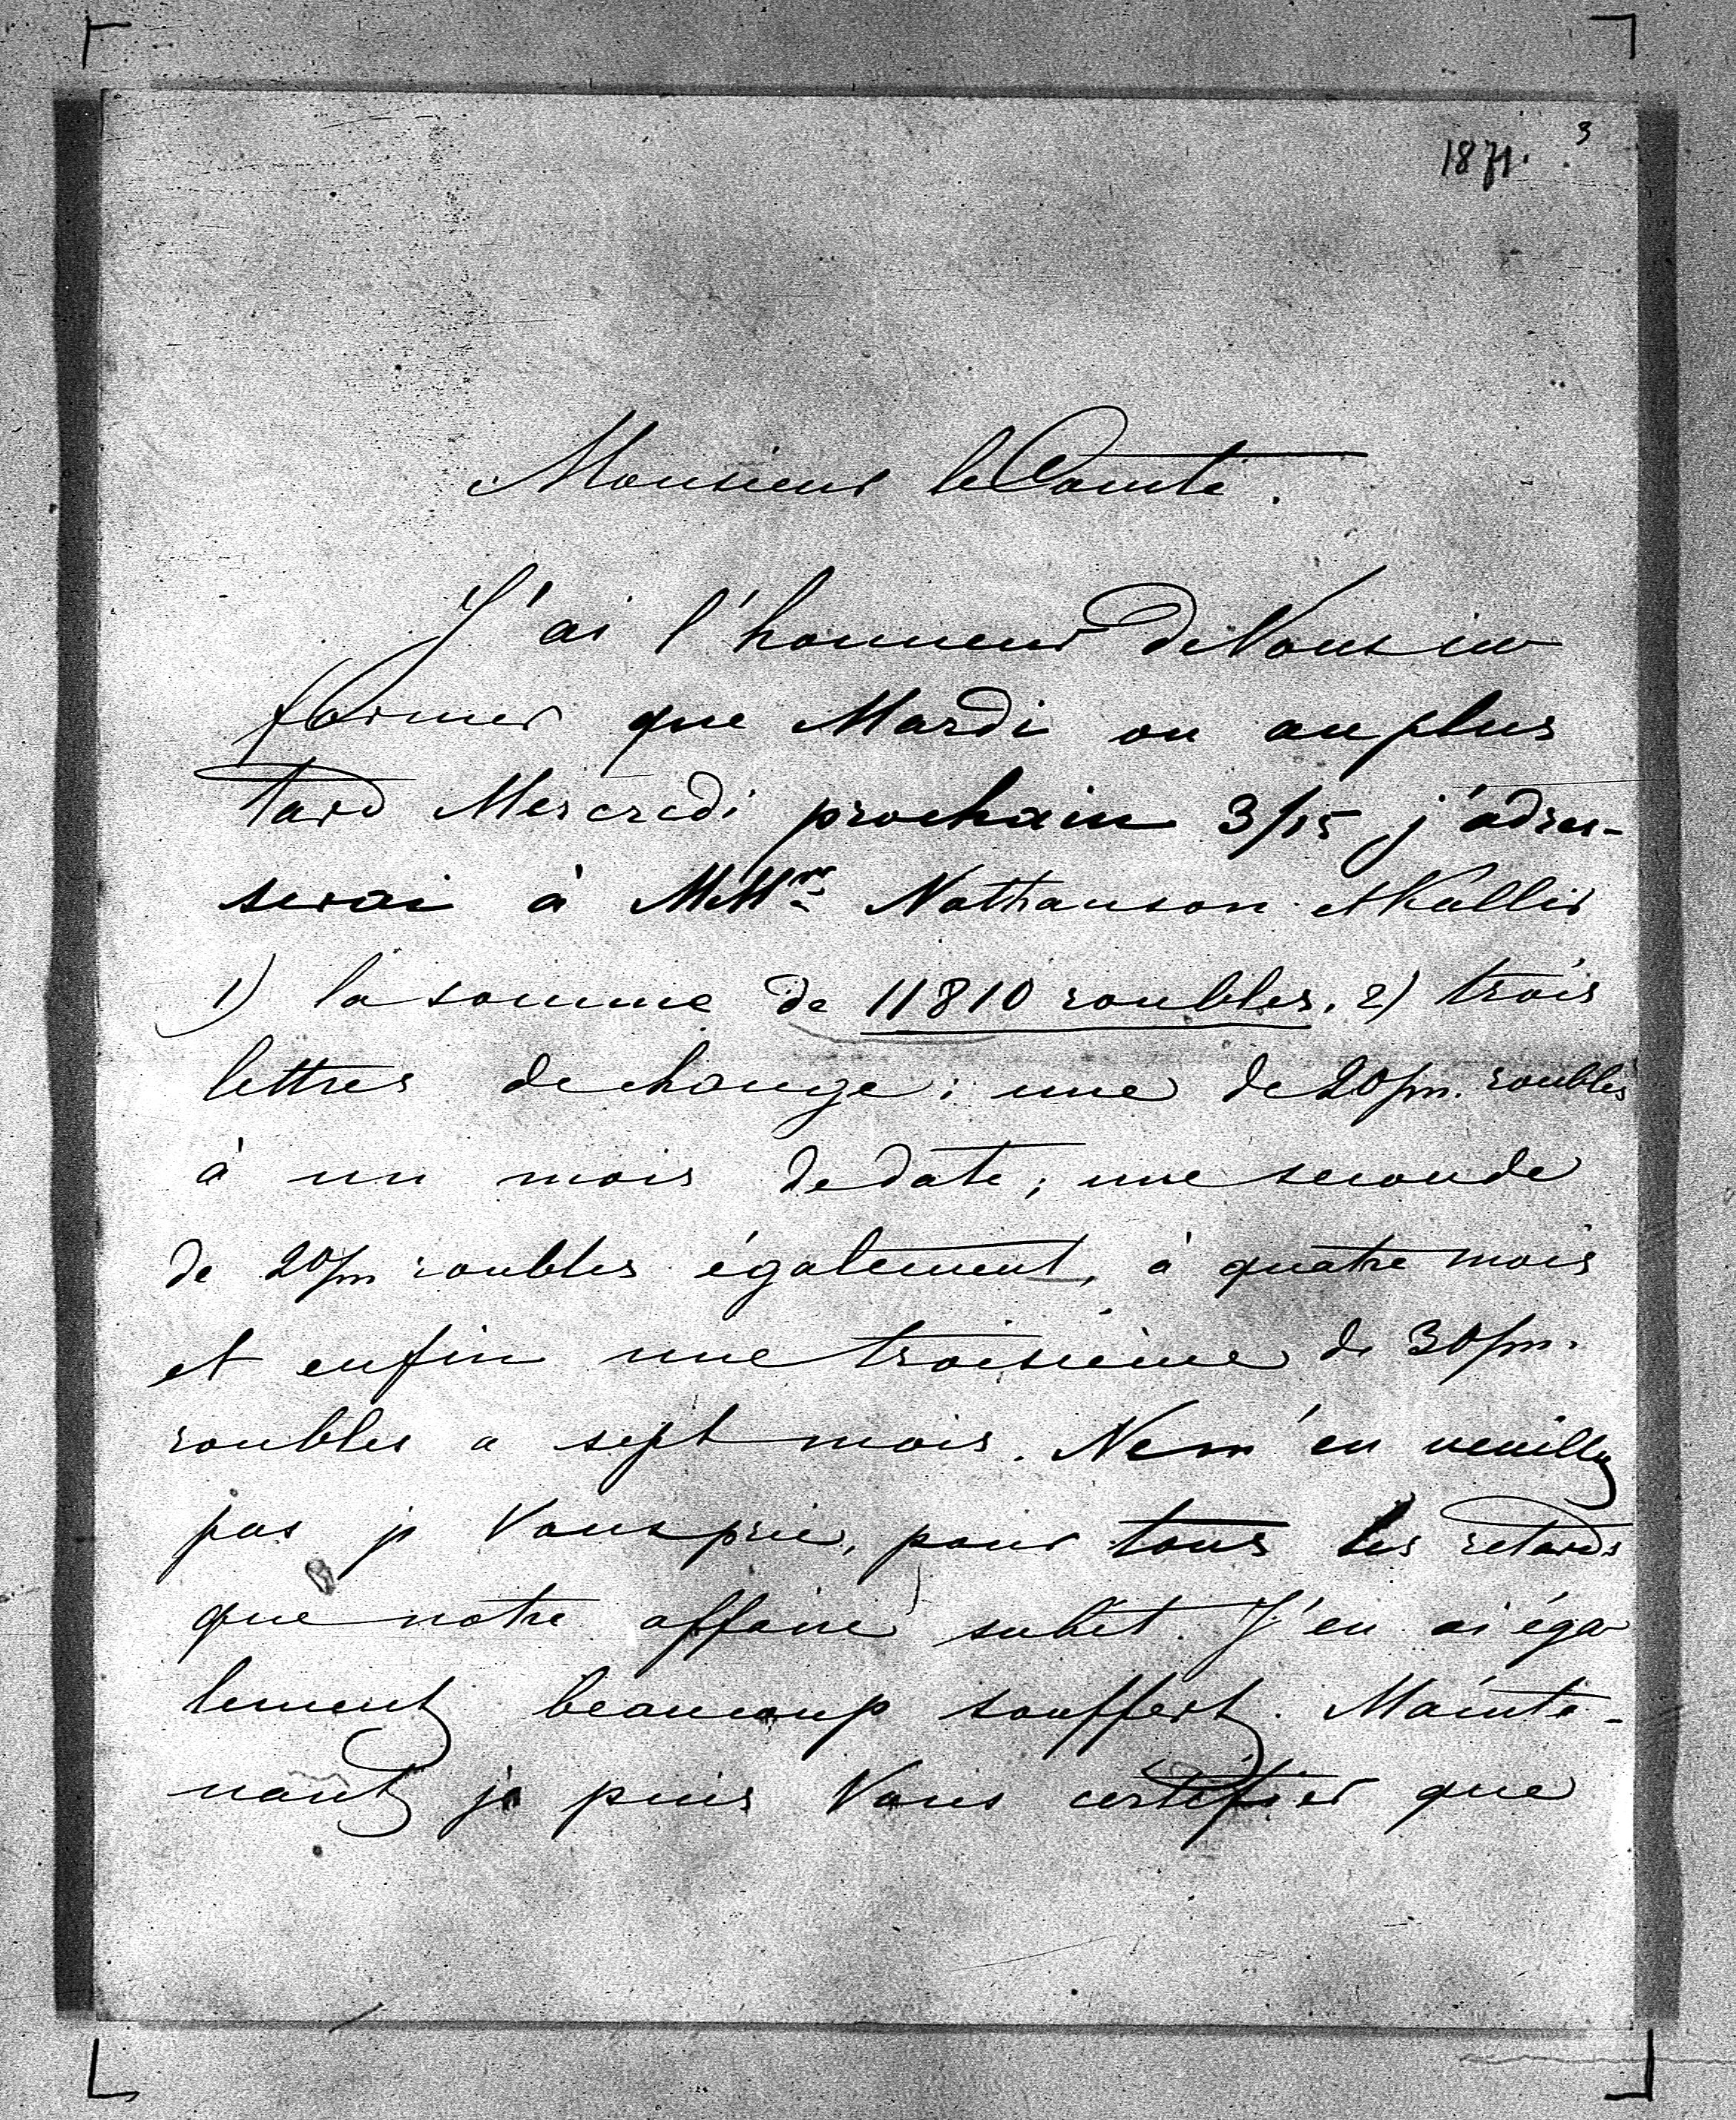 3
1871.
Monsieur le Comte.
J'ai l'honneur de Vous in
former que Mardi ou au plus
tard Mercredi prochain 3/15 j'adres-
serai à MM Nathanson et Kallir
1) la somme de 11810 roubles. 2) trois
lettres de change: une de 20/m. roubles
à un mois de date; une seconde
de 20/m roubles également, à quatre mois
et enfin une troisième de 30/m.
roubles a sept mois. Ne m'en veuillez
pas je Vous prie, pour tous les retards
que notre affaire subit. J'en ai éga
lement beaucoup souffert. Mainte-
nant je puis Vous certifier que